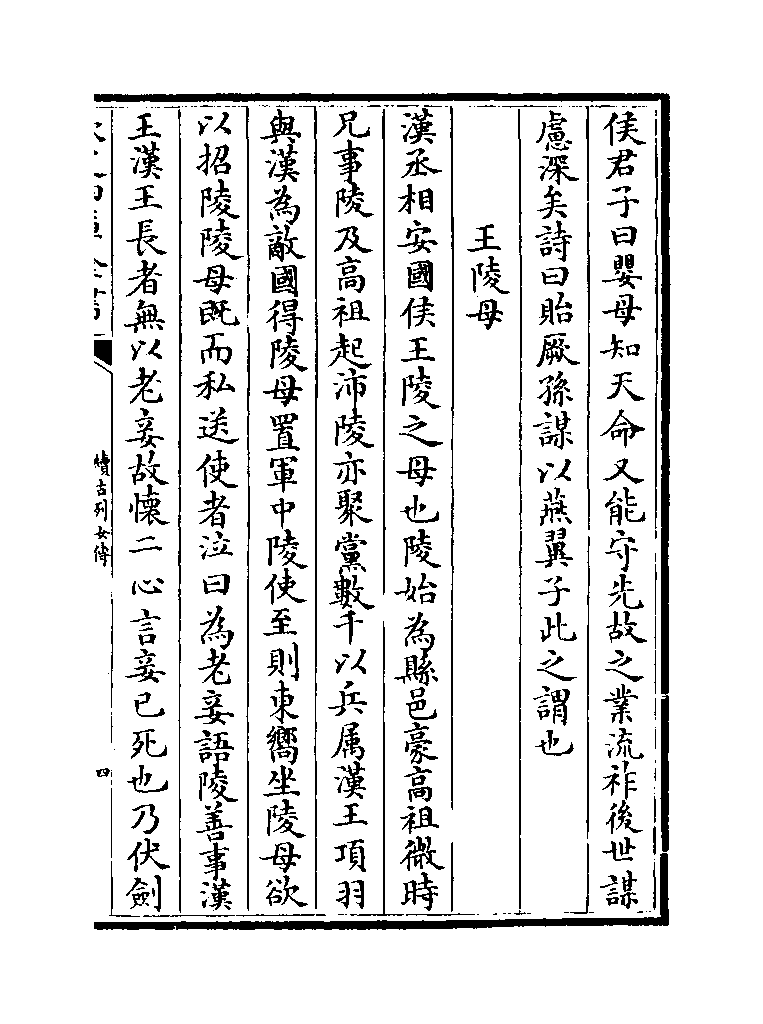 侯君子曰嬰母知天命又能守先故之業流祚後世謀
慮深矣詩曰貽厥孫謀以燕翼子此之謂也
王陵母
漢丞相安國侯王陵之母也陵始為縣邑豪高祖微時
兄事陵及高祖起沛陵亦聚黨數千以兵属漢王項羽
與漢為敵國得陵母置軍中陵使至則東嚮坐陵母欲
以招陵陵母既而私送使者泣曰為老妾語陵善事漢
王漢王長者無以老妾故懷二心言妾已死也乃伏劍
續古列女傳
四